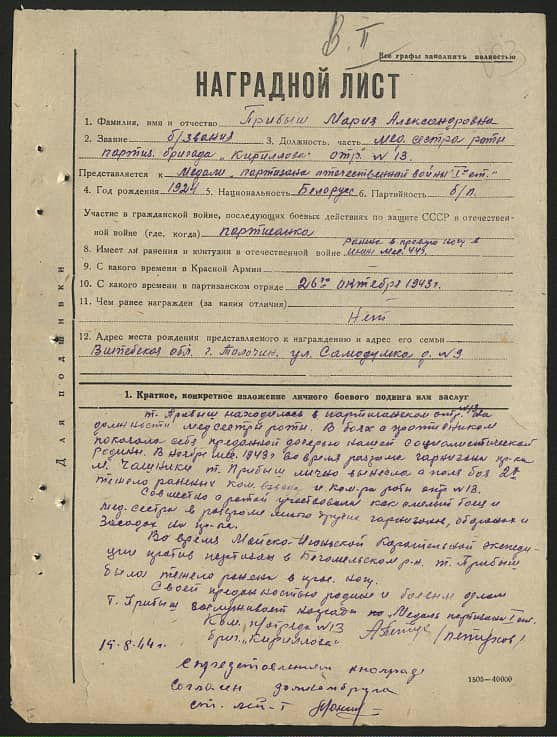 В. II
Все графы заполнять полностью
НАГРАДНОЙ ЛИСТ
1. Фамилия, имя и отчество Прибыш Мария Александровна
2. Звание б/звания 3. Должность, часть мед. сестра роты
партиз. бригада "Кириллова" отр. N 13.
Представляется к Медали "партизана отечественной войны I ст."
4. Год рождения 1924 5. Национальность Белорус 6. Партийность б/п.
Участие в гражданской войне, последующих боевых действиях по защите СССР и отечествен-
ной войне (где, когда) партизанка
8. Имеет ли ранения и контузии в отечественной войне ранена в правую ногу в
июне мес. 44г.
9. С какого времени в Красной Армии
10. С какого времени в партизанском отряде 26го октября 1943г.
11. Чем ранее награжден (за какия отличия)
Нет
12. Адрес места рождения представляемого к награждению и адрес его семьи
Витебская обл. г. Толочин. ул. Самодумка д. N 9
Для подшивки
1. Краткое, конкретное изложение личного боевого подвига или заслуг
т. Прибыш находилась в партизанском отр. N 13 на
должности медсестры роты. В боях с противником
показала себя преданной дочерью нашей социалистической
родины. В ноябре мес. 1943г во время разгрома гарнизона пр-ка
м. Чашники т. Прибыш лично вынесла с поля боя 2х
тяжело раненых ком. взвода и ком-ра роты отр N 13.
Совместно с ротой участвовала как смелый боец и
мед. сестра в разгроме многих других гарнизон, оборонах и
засадах на пр-ка.
Во время Майско-Июньской Карательной экспеди-
ции против партизан в Бегомельском р-н. т. Прибыш
была тяжело ранена в прав. ногу.
Своей преданностью родине и боевым делом
т. Прибыш заслуживает награды Медаль партизан I ст.
Ком. п/отряда N 13
бриг. "Кириллова" (Петухов)
15-8-44г.
С представлением к награде
согласен
ст. лей-т
1505—40000